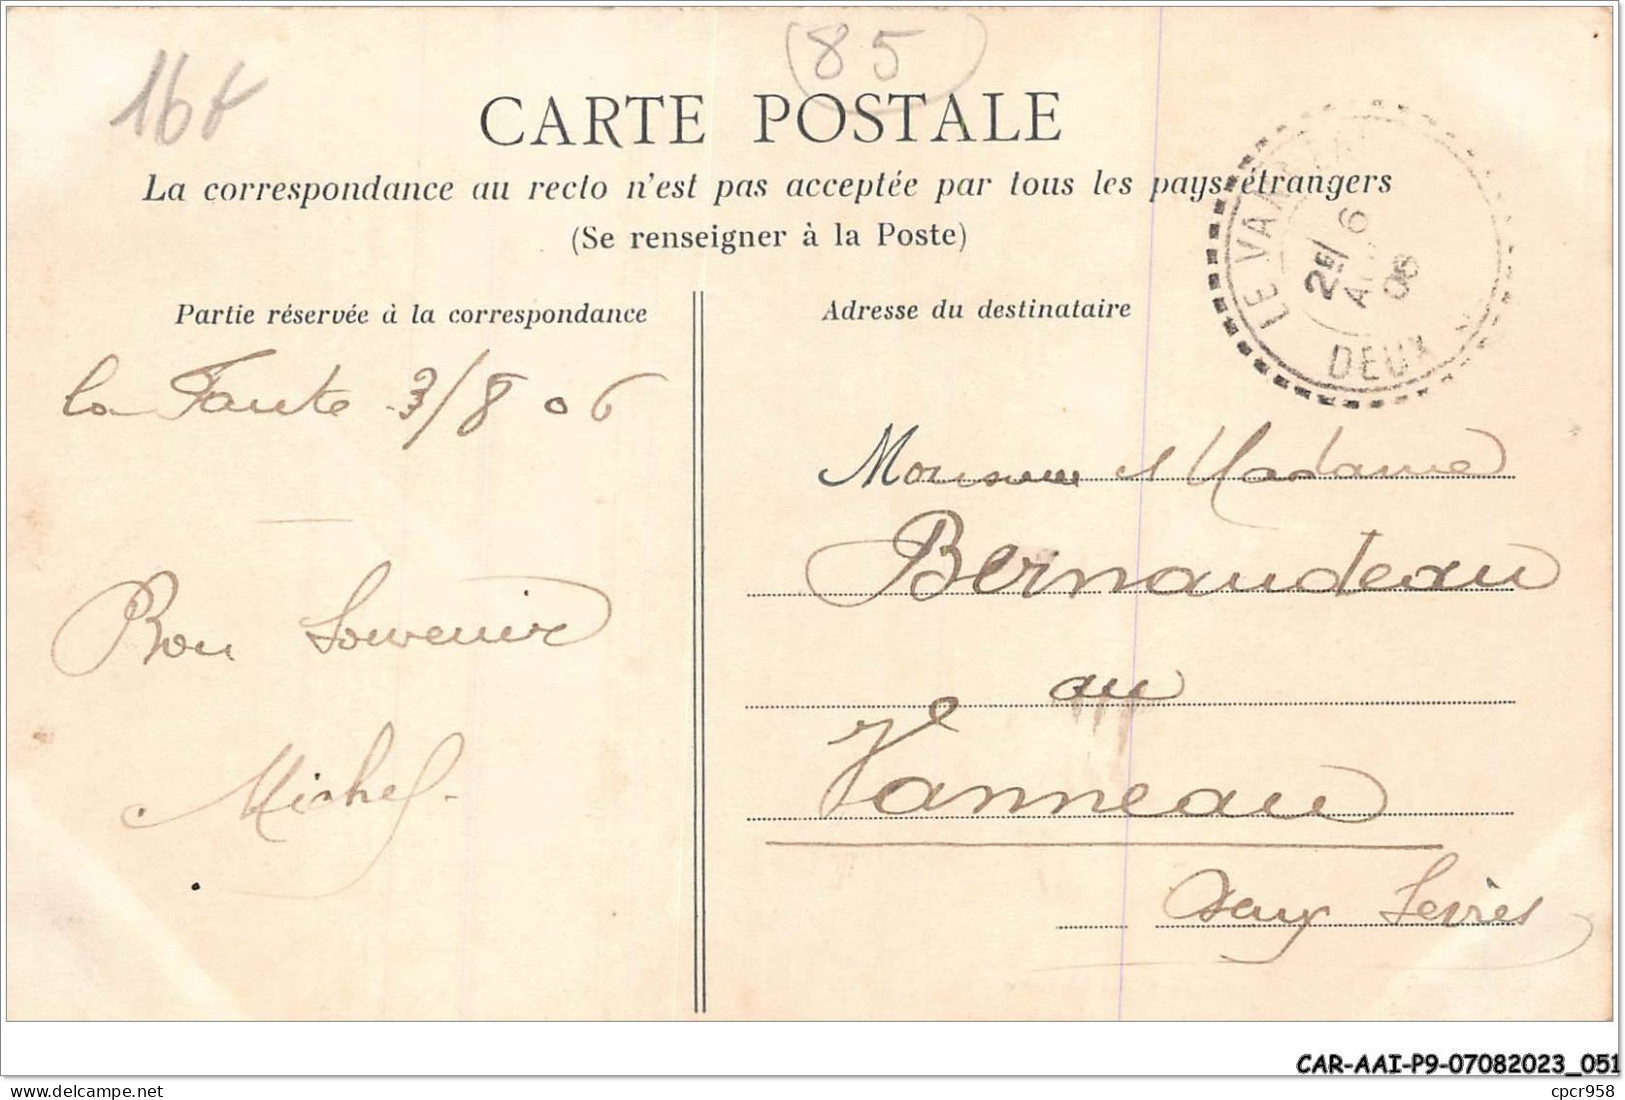 16f
(85)
CARTE POSTALE
La correspondance au recto n'est pas acceptée par tous les pays étrangers
(Se renseigner à la Poste)
LE VANNEAU
2E
6
06
DEUX
Partie réservée à la correspondance
Adresse du destinataire
la Faute 3/8 06
Bon Souvenir
Michel
Monsieur et Madame
Bernaudeau
au
Vanneau
Deux Sèvres
CAR-AAI-P9-07082023_051
cpcr958